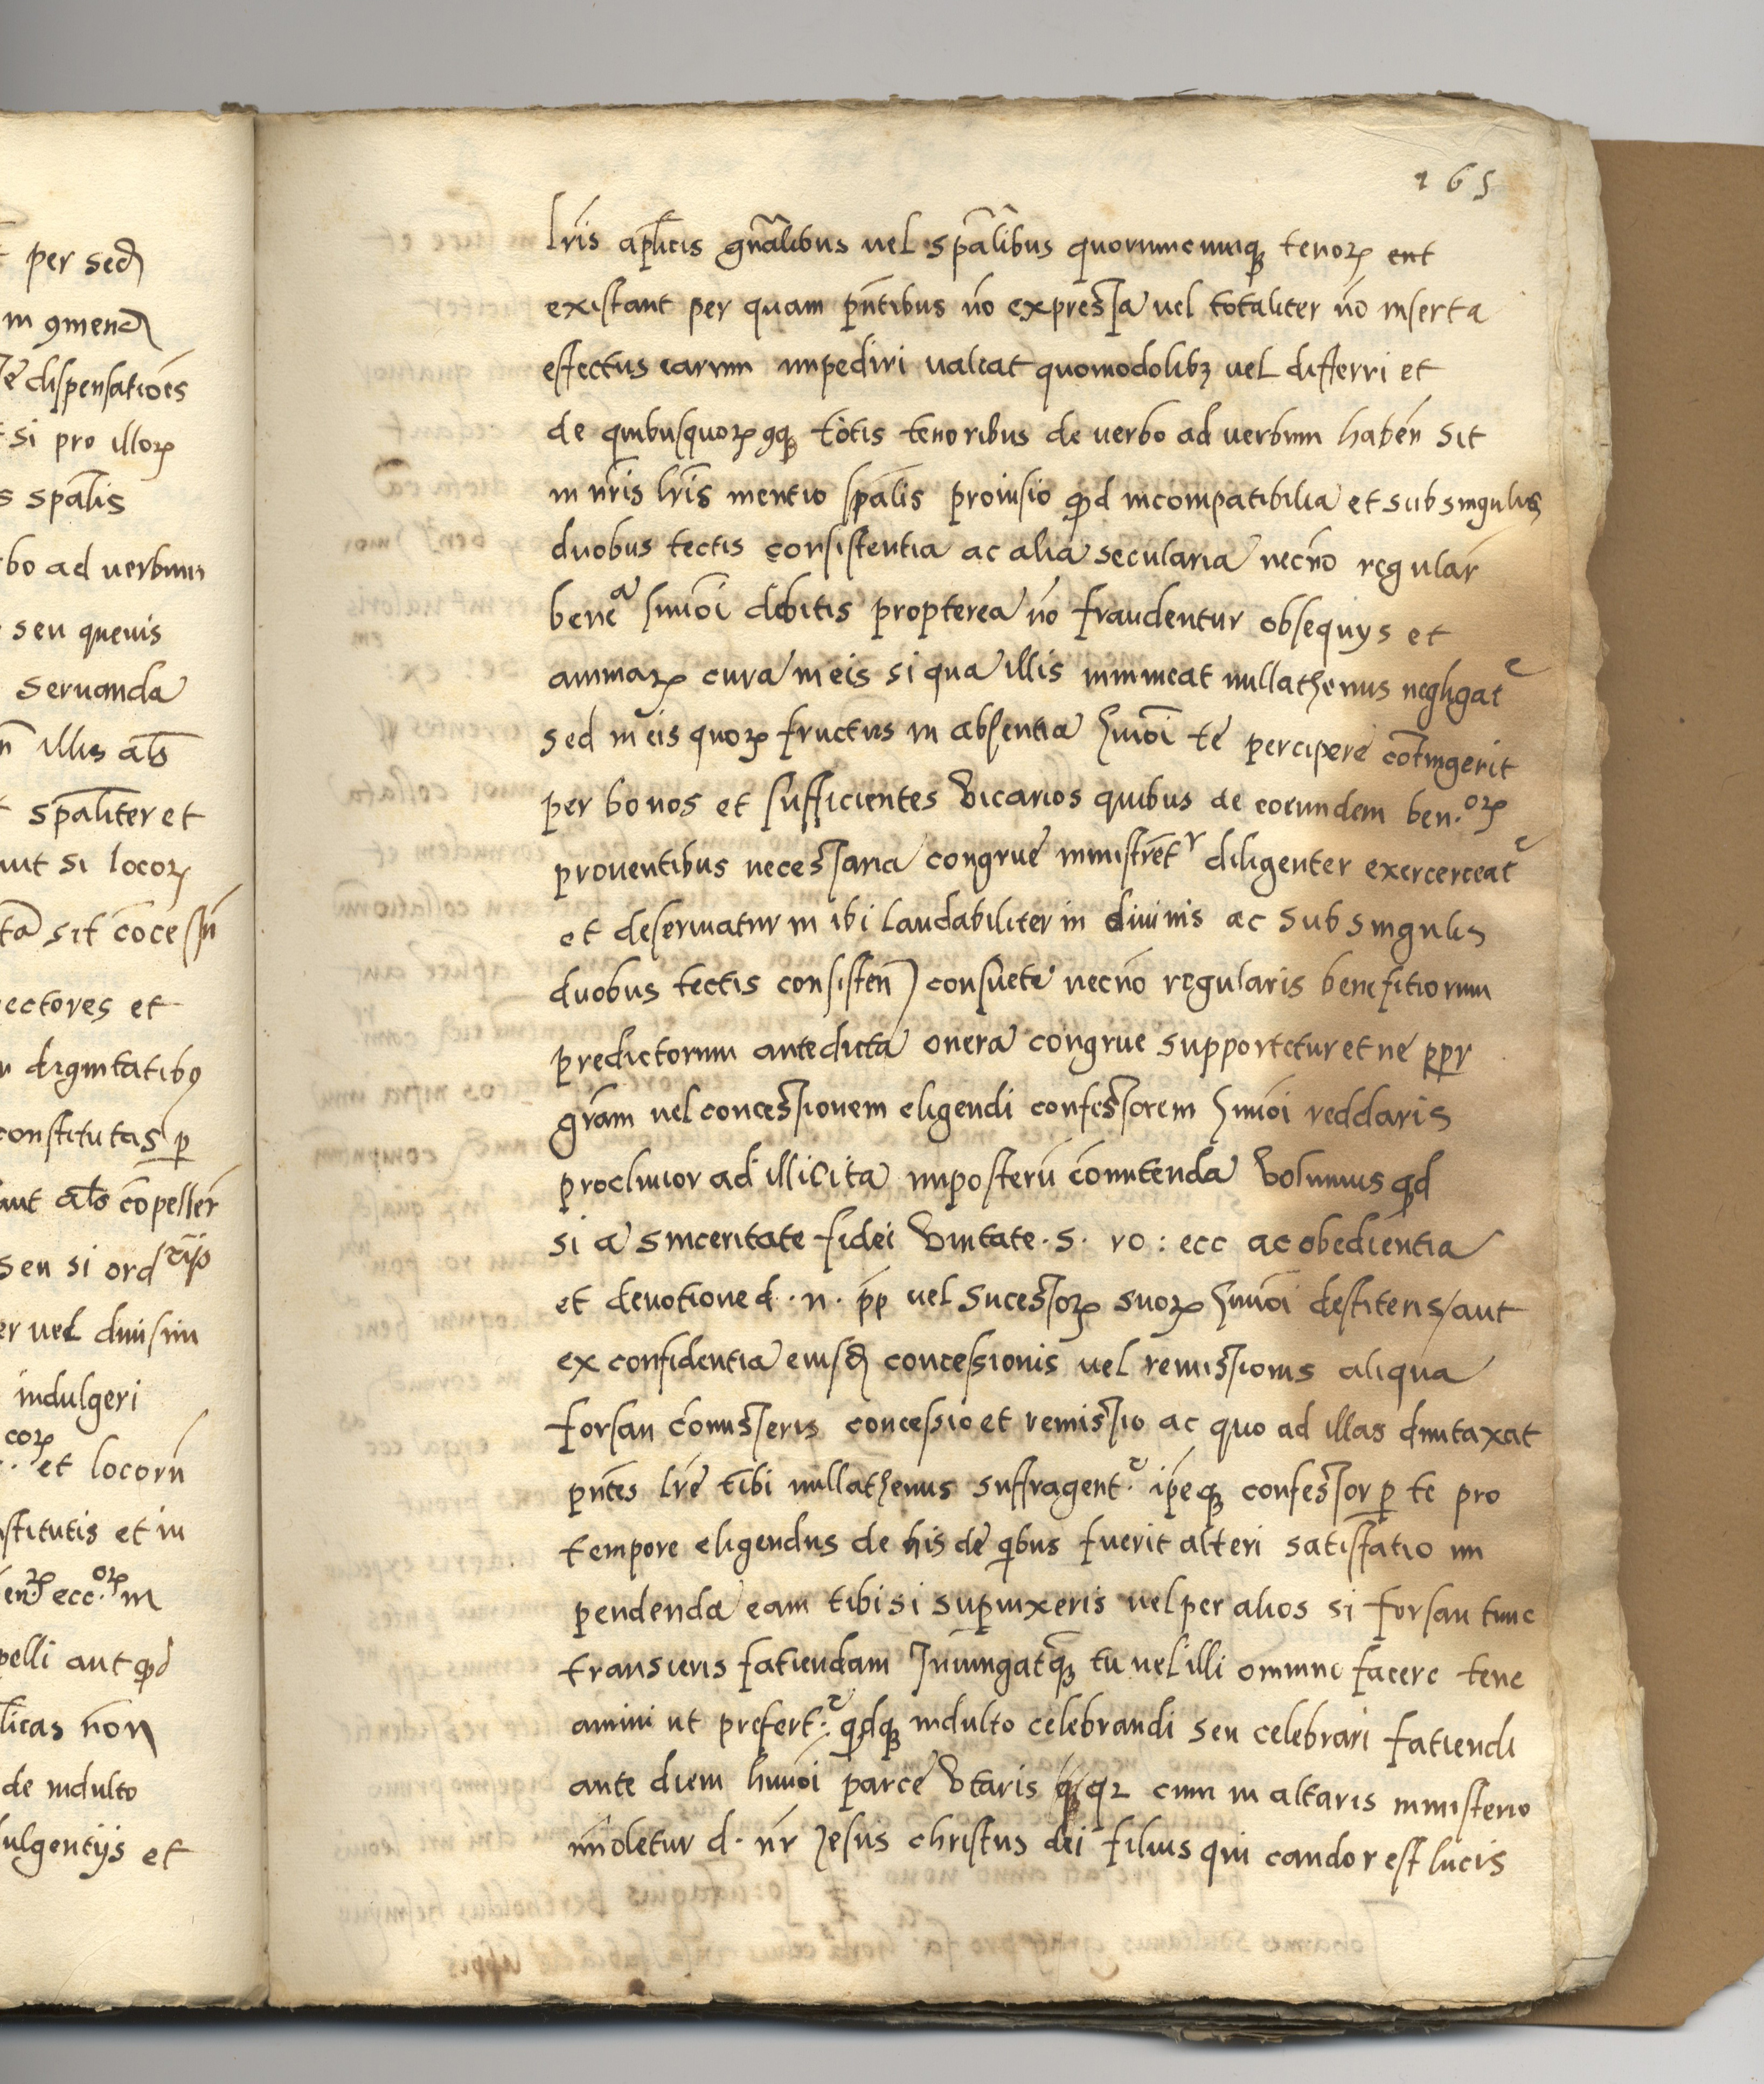 per sed
in ꝯmend
dispensatiões
si pro illoꝝ
spālis
bo ad uerbum
seu queuis
seruanda
illis als̄
spāliter et
aut si locoꝝ
sit cōcessū
ectores et
dignitatibꝯ
constitutas ꝑ
aut als̄ cōpeller̄
seu si ord
er uel diuisim
indulgeri
coꝝ et locorū
stitutis et in
ecc. oꝝ in
pelli aut qd
licas non
de indulto
ulgentijs et
265
lr̄is aplicis gnālibus uel spālibus quorumcumqꝫ tenoꝝ ent
existant per quam pn̄tibus nō expressa uel totaliter nō inserta
effectus earum impediri ualeat quomodolibꝫ uel differri et
de quibusquoꝝꝯqꝫ totis tenoribus de uerbo ad uerbum habēn sit
in nr̄is lr̄is mentio spālis prouiso qd incompatibilia et sub singulis
duobus tectis consistentia ac alia secularia necnō regular̄
beneᵃ hmōi debitis propterea nō fraudentur obsequys et
animaꝝ cura in eis si qua illis immineat nullathenus negligatᵉ
sed in eis quoꝝ fructus in absentia hmōi te percipere cōtingerit
per bonos et sufficientes vicarios quibus de eorundem ben.ᵒꝝ
prouentibus necessaria congrue ministretʳ diligenter exercerceatᵉ
et deseruiatur in ibi laudabiliter in diuinis ac sub singulis
duobus tectis consisten) consuete necnō regularis benefitiorum
predictorum antedicta onera congrue supportetur et ne ꝑpr
grām uel concessionem eligendi confessorem hmōi reddaris
procliuior ad illicita imposterū cōmitenda volumus qd
si a sinceritate fidei vnitate . s. ro : ecc ac obedientia
et deuotione d . n . pp uel sucessoꝝ suoꝝ hmōi destiteris / aut
ex confidentia eiusd concessionis uel remissionis aliqua
forsan cōmisseris concessio et remissio ac quo ad illas dumtaxat
pn̄tes lr̄e tibi nullathenus suffragent.ᵉ ip̄eqꝫ confessor ꝑ te pro
tempore eligendus de his de qibus fuerit alteri satisfatio im
pendenda eam tibi si supuixeris uel per alios si forsan tunc
transieris fatiendam Iniungatqꝫ tu uel illi omnino facere tene
amini ut prefert.ᵉ: qdqꝫ indulto celebrandi seu celebrari fatiendi
ante diem hmōi parce vtaris qꝫ qꝛ cum in altaris ministerio
imoletur d . nr̄ Jesus christus dei filius qui candor est lucis